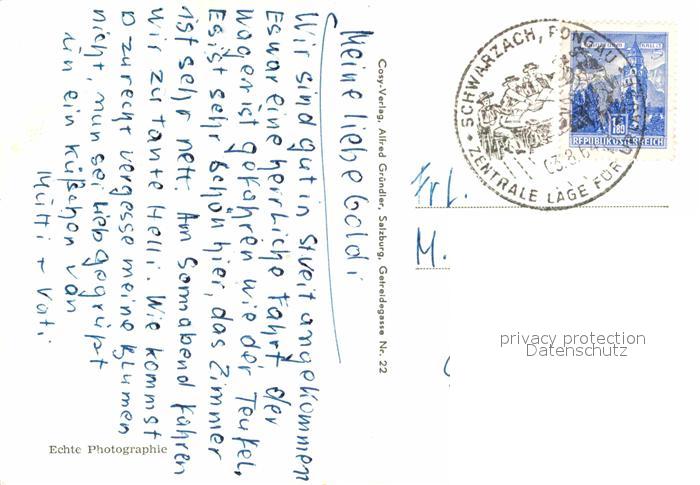 Meine liebe Goldi
Wir sind gut in St. Veit angekommen
Es war eine herrliche Fahrt der
Wagen ist gefahren wie der Teufel,
Es ist sehr schön hier, das Zimmer
ist sehr nett. Am Sonnabend fahren
wir zu Tante Helli. Wie kommst
D zurecht vergesse meine Blumen
nicht, nun sei lieb gegrüßt
u in ein Küßchen von
Mutti + Vati
Echte Photographie
Cosy-Verlag, Alfred Gründler, Salzburg, Getreidegasse Nr. 22
SCHWARZACH, PONGAU
ZENTRALE LAGE FÜR
03.8.6
1.80
REPUBLIK ÖSTERREICH
Frl.
M.
privacy protection
Datenschutz